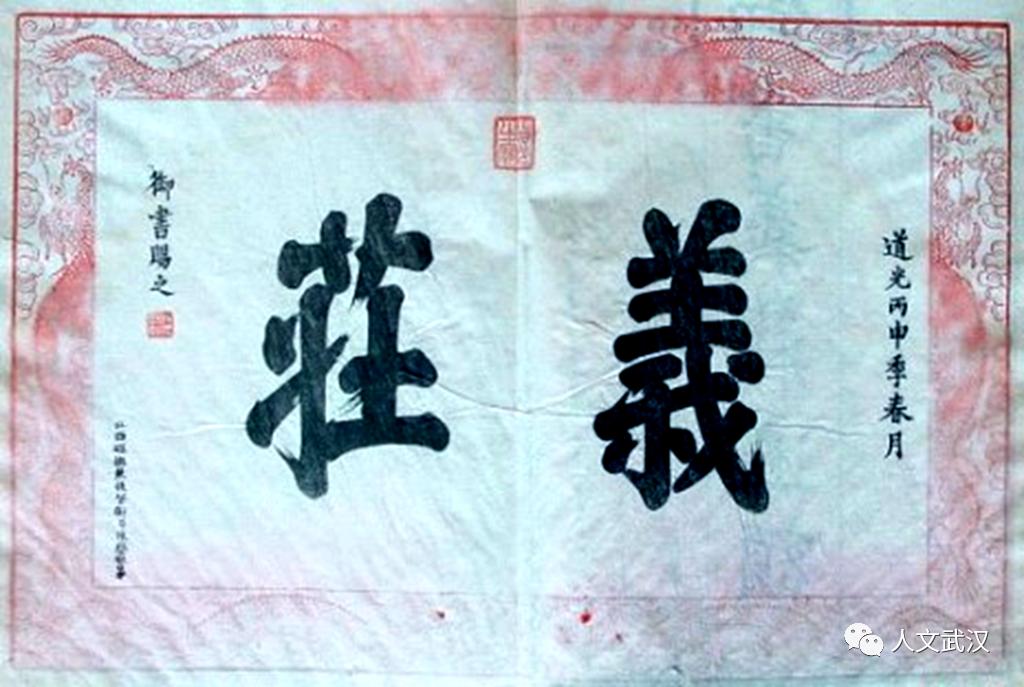 道光丙申季春月
義莊
御書賜之
人文武汉